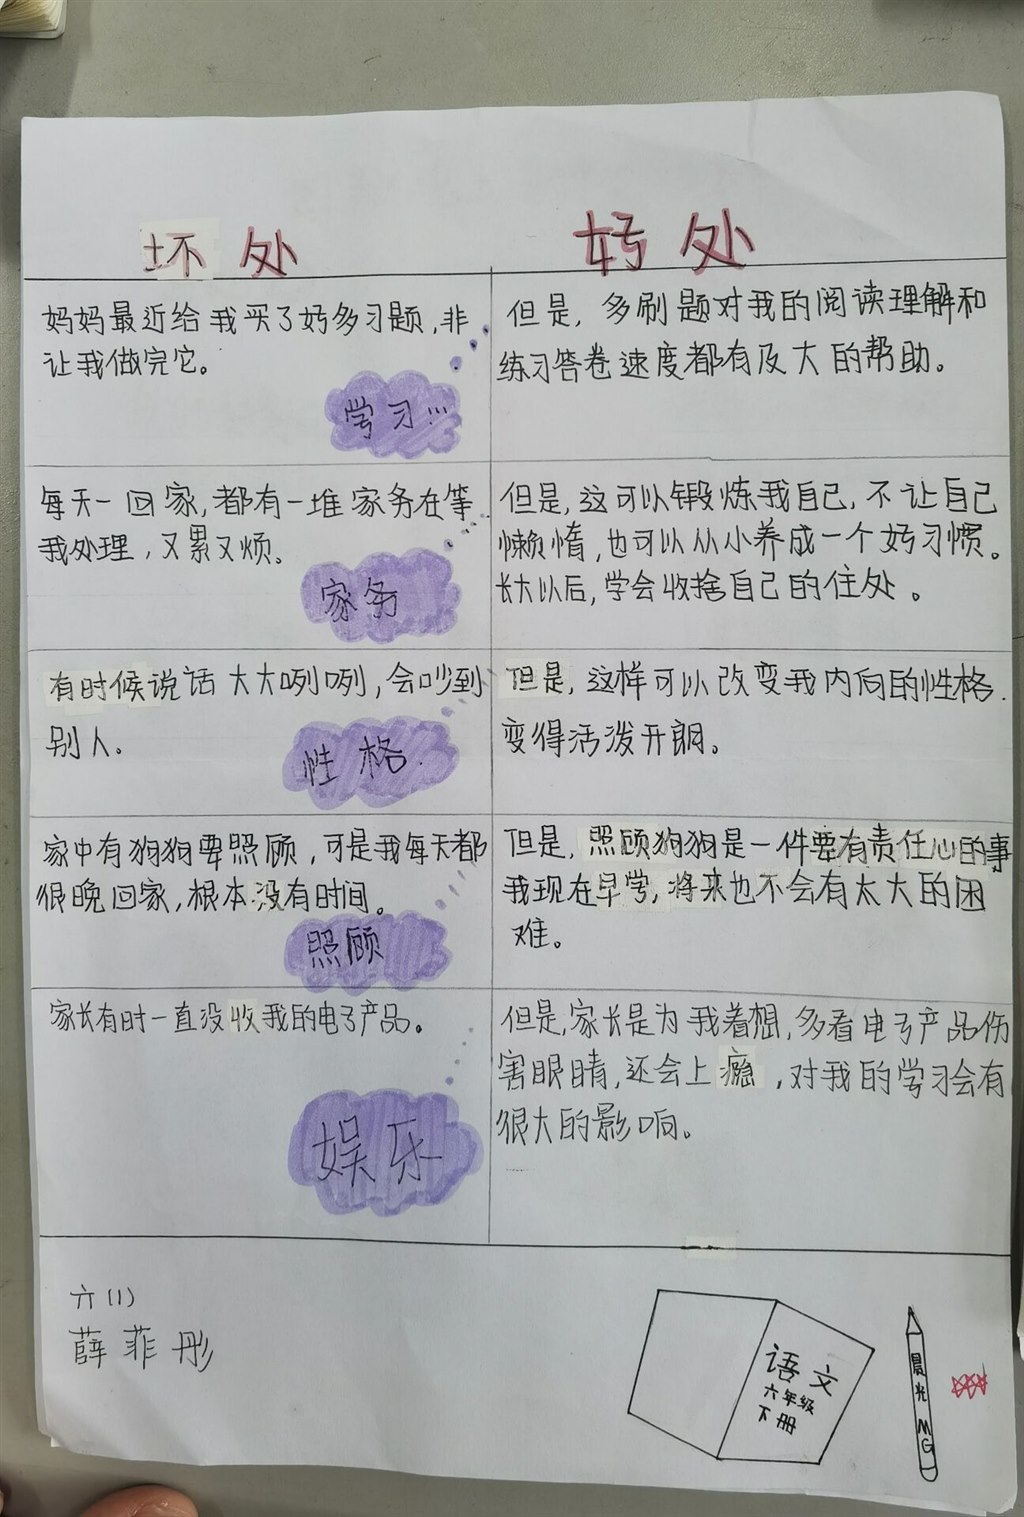 坏处
转处
妈妈最近给我买了好多习题,非
让我做完它。
学习…
但是,多刷题对我的阅读理解和
练习答卷速度都有及大的帮助。
每天一回家,都有一堆家务在等
我处理,又累又烦。
家务
但是,这可以锻炼我自己,不让自己
懒惰,也可以从小养成一个好习惯。
长大以后,学会收捨自己的住处。
有时候说话大大咧咧,会吵到
别人。
性格
但是,这样可以改变我内向的性格.
变得活泼开朗。
家中有狗狗要照顾,可是我每天都
很晚回家,根本没有时间。
照顾
但是,照顾狗狗是一件要有责任心的事
我现在早学,将来也不会有太大的困
难。
家长有时一直没收我的电子产品。
娱乐
但是,家长是为我着想,多看电子产品伤
害眼睛,还会上瘾,对我的学习会有
很大的影响。
六(1)
薛菲彤
语文
六年级
下册
晨光 MG